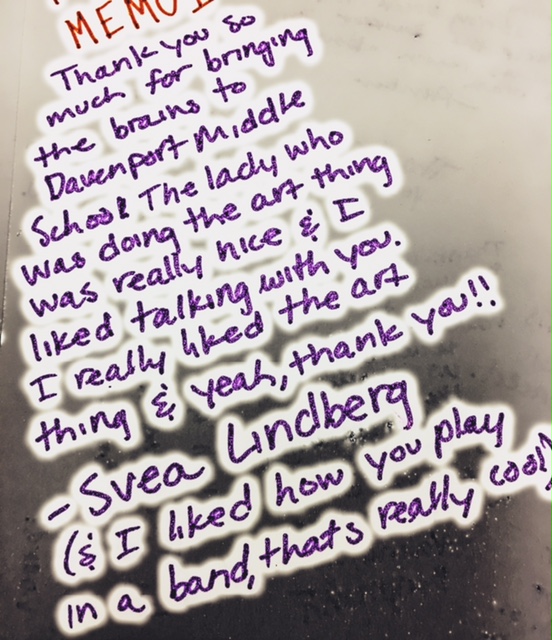 Thank you so
much for bringing
the brains to
Davenport Middle
School! The lady who
was doing the art thing
was really nice & I
liked talking with you.
I really liked the art
thing & yeah, thank you!!
- Svea Lindberg
(& I liked how you play
in a band, that's really cool)